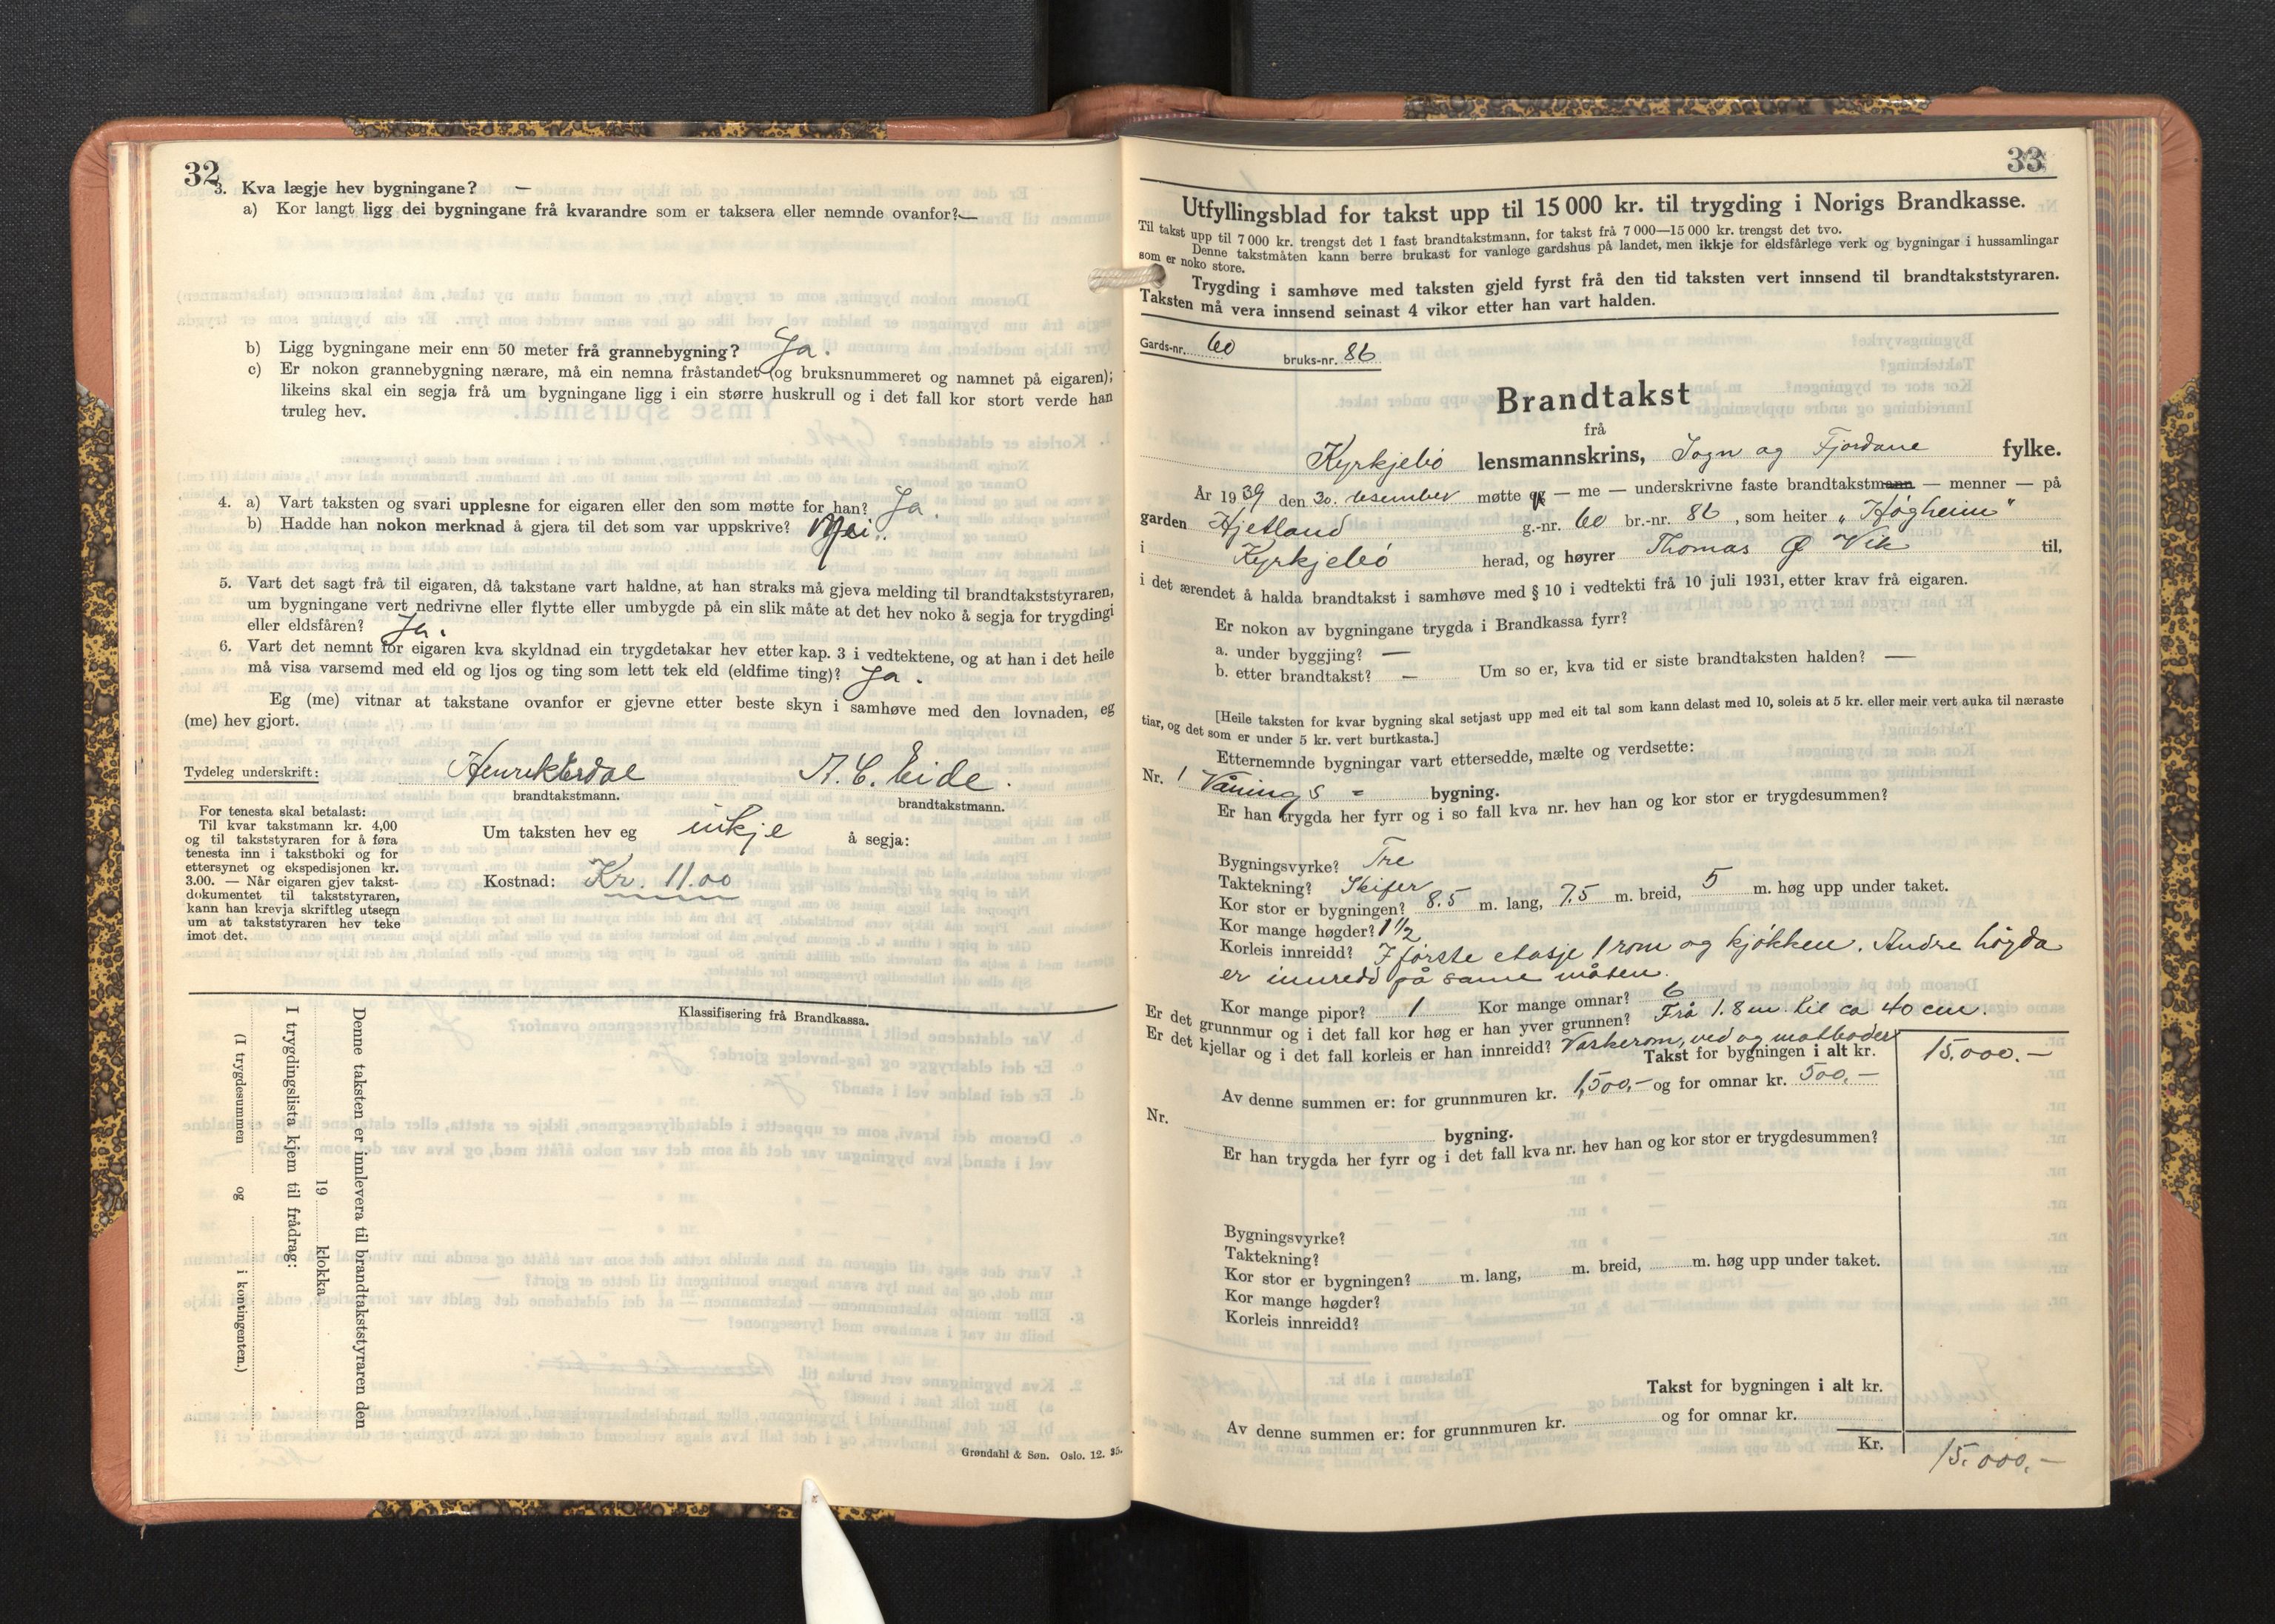 32
3. Kva lægje hev bygningane? —
a) Kor langt ligg dei bygningane frå kvarandre som er taksera eller nemnde ovanfor? —
b) Ligg bygningane meir enn 50 meter frå grannebygning? Ja.
c) Er nokon grannebygning nærare, må ein nemna fråstandet (og bruksnummeret og namnet på eigaren);
likeins skal ein segja frå um bygningane ligg i ein større huskrull og i det fall kor stort verde han
truleg hev.
4. a) Vart taksten og svari upplesne for eigaren eller den som møtte for han? Ja.
b) Hadde han nokon merknad å gjera til det som var uppskrive? Nei.
5. Vart det sagt frå til eigaren, då takstane vart haldne, at han straks må gjeva melding til brandtakststyraren,
um bygningane vert nedrivne eller flytte eller umbygde på ein slik måte at det hev noko å segja for trygdingi
eller eldsfåren? Ja.
6. Vart det nemnt for eigaren kva skyldnad ein trygdetakar hev etter kap. 3 i vedtektene, og at han i det heile
må visa varsemd med eld og ljos og ting som lett tek eld (eldfime ting)? Ja.
Eg (me) vitnar at takstane ovanfor er gjevne etter beste skyn i samhøve med den lovnaden, eg
(me) hev gjort.
Tydeleg underskrift: Henrik Erdal A. C. Eide.
brandtakstmann. brandtakstmann.
For tenesta skal betalast:
Til kvar takstmann kr. 4,00
og til takststyraren for å føra
tenesta inn i takstboki og for
ettersynet og ekspedisjonen kr.
3.00. — Når eigaren gjev takst-
dokumentet til takststyraren,
kann han krevja skriftleg utsegn
um at takststyraren hev teke
imot det.
Um taksten hev eg inkje å segja:
Kostnad: Kr. 11.00
Klassifisering frå Brandkassa.
Denne taksten er innlevera til brandtakststyraren den
19 klokka
I trygdingslista kjem til frådrag:
(I trygdesummen og i kontingenten.)
Grøndahl & Søn. Oslo. 12. 35.
33
Utfyllingsblad for takst upp til 15 000 kr. til trygding i Norigs Brandkasse.
Til takst upp til 7 000 kr. trengst det 1 fast brandtakstmann, for takst frå 7 000—15 000 kr. trengst det tvo.
Denne takstmåten kann berre brukast for vanlege gardshus på landet, men ikkje for eldsfårlege verk og bygningar i hussamlingar
som er noko store.
Trygding i samhøve med taksten gjeld fyrst frå den tid taksten vert innsend til brandtakststyraren.
Taksten må vera innsend seinast 4 vikor etter han vart halden.
Gards-nr. 60 bruks-nr. 86
Brandtakst
frå
Kyrkjebö lensmannskrins, Sogn og Fjordane fylke.
År 1939 den 30. desember møtte eg — me — underskrivne faste brandtakstmann — menner — på
garden Hjetland g.-nr. 60 br.-nr. 86, som heiter „Høgheim"
i Kyrkjebö herad, og høyrer Thomas Ø Vik til,
i det ærendet å halda brandtakst i samhøve med § 10 i vedtekti frå 10 juli 1931, etter krav frå eigaren.
Er nokon av bygningane trygda i Brandkassa fyrr?
a. under byggjing? —
b. etter brandtakst? — Um so er, kva tid er siste brandtaksten halden? —
[Heile taksten for kvar bygning skal setjast upp med eit tal som kann delast med 10, soleis at 5 kr. eller meir vert auka til næraste
tiar, og det som er under 5 kr. vert burtkasta.]
Etternemnde bygningar vart ettersedde, mælte og verdsette:
Nr. 1 Vånings = bygning.
Er han trygda her fyrr og i so fall kva nr. hev han og kor stor er trygdesummen?
Bygningsvyrke? Tre
Taktekning? Skifer
Kor stor er bygningen? 8.5 m. lang, 7.5 m. breid, 5 m. høg upp under taket.
Kor mange høgder? 1 1/2
Korleis innreidd? I förste etasje 1 rom og kjökken. Andre högda
er innredd på same måten.
Kor mange pipor? 1 Kor mange omnar? 6
Er det grunnmur og i det fall kor høg er han yver grunnen? Frå 1.8 m til ca 40 cm.
Er det kjellar og i det fall korleis er han innreidd? Vaskerom, ved og matboder
Takst for bygningen i alt kr. 15.000.—
Av denne summen er: for grunnmuren kr. 1,500,— og for omnar kr. 500,—
Nr. bygning.
Er han trygda her fyrr og i det fall kva nr. hev han og kor stor er trygdesummen?
Bygningsvyrke?
Taktekning?
Kor stor er bygningen? m. lang, m. breid, m. høg upp under taket.
Kor mange høgder?
Korleis innreidd?
Takst for bygningen i alt kr.
Av denne summen er: for grunnmuren kr. og for omnar kr.
Kr. 15.000,—